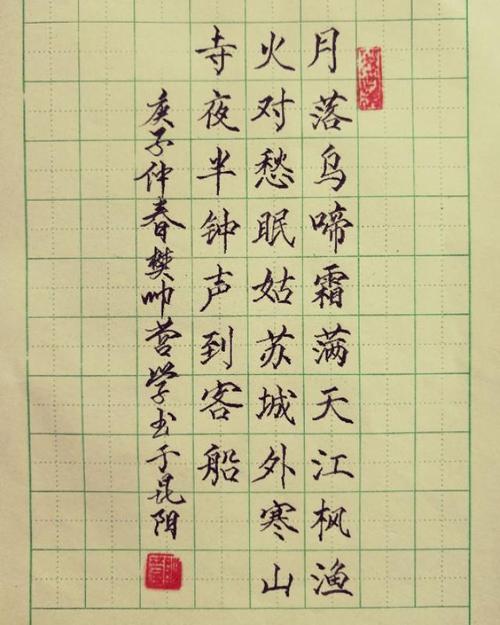 月落乌啼霜满天江枫渔
火对愁眠姑苏城外寒山
寺夜半钟声到客船
庚子仲春樊帅营学书于昆阳